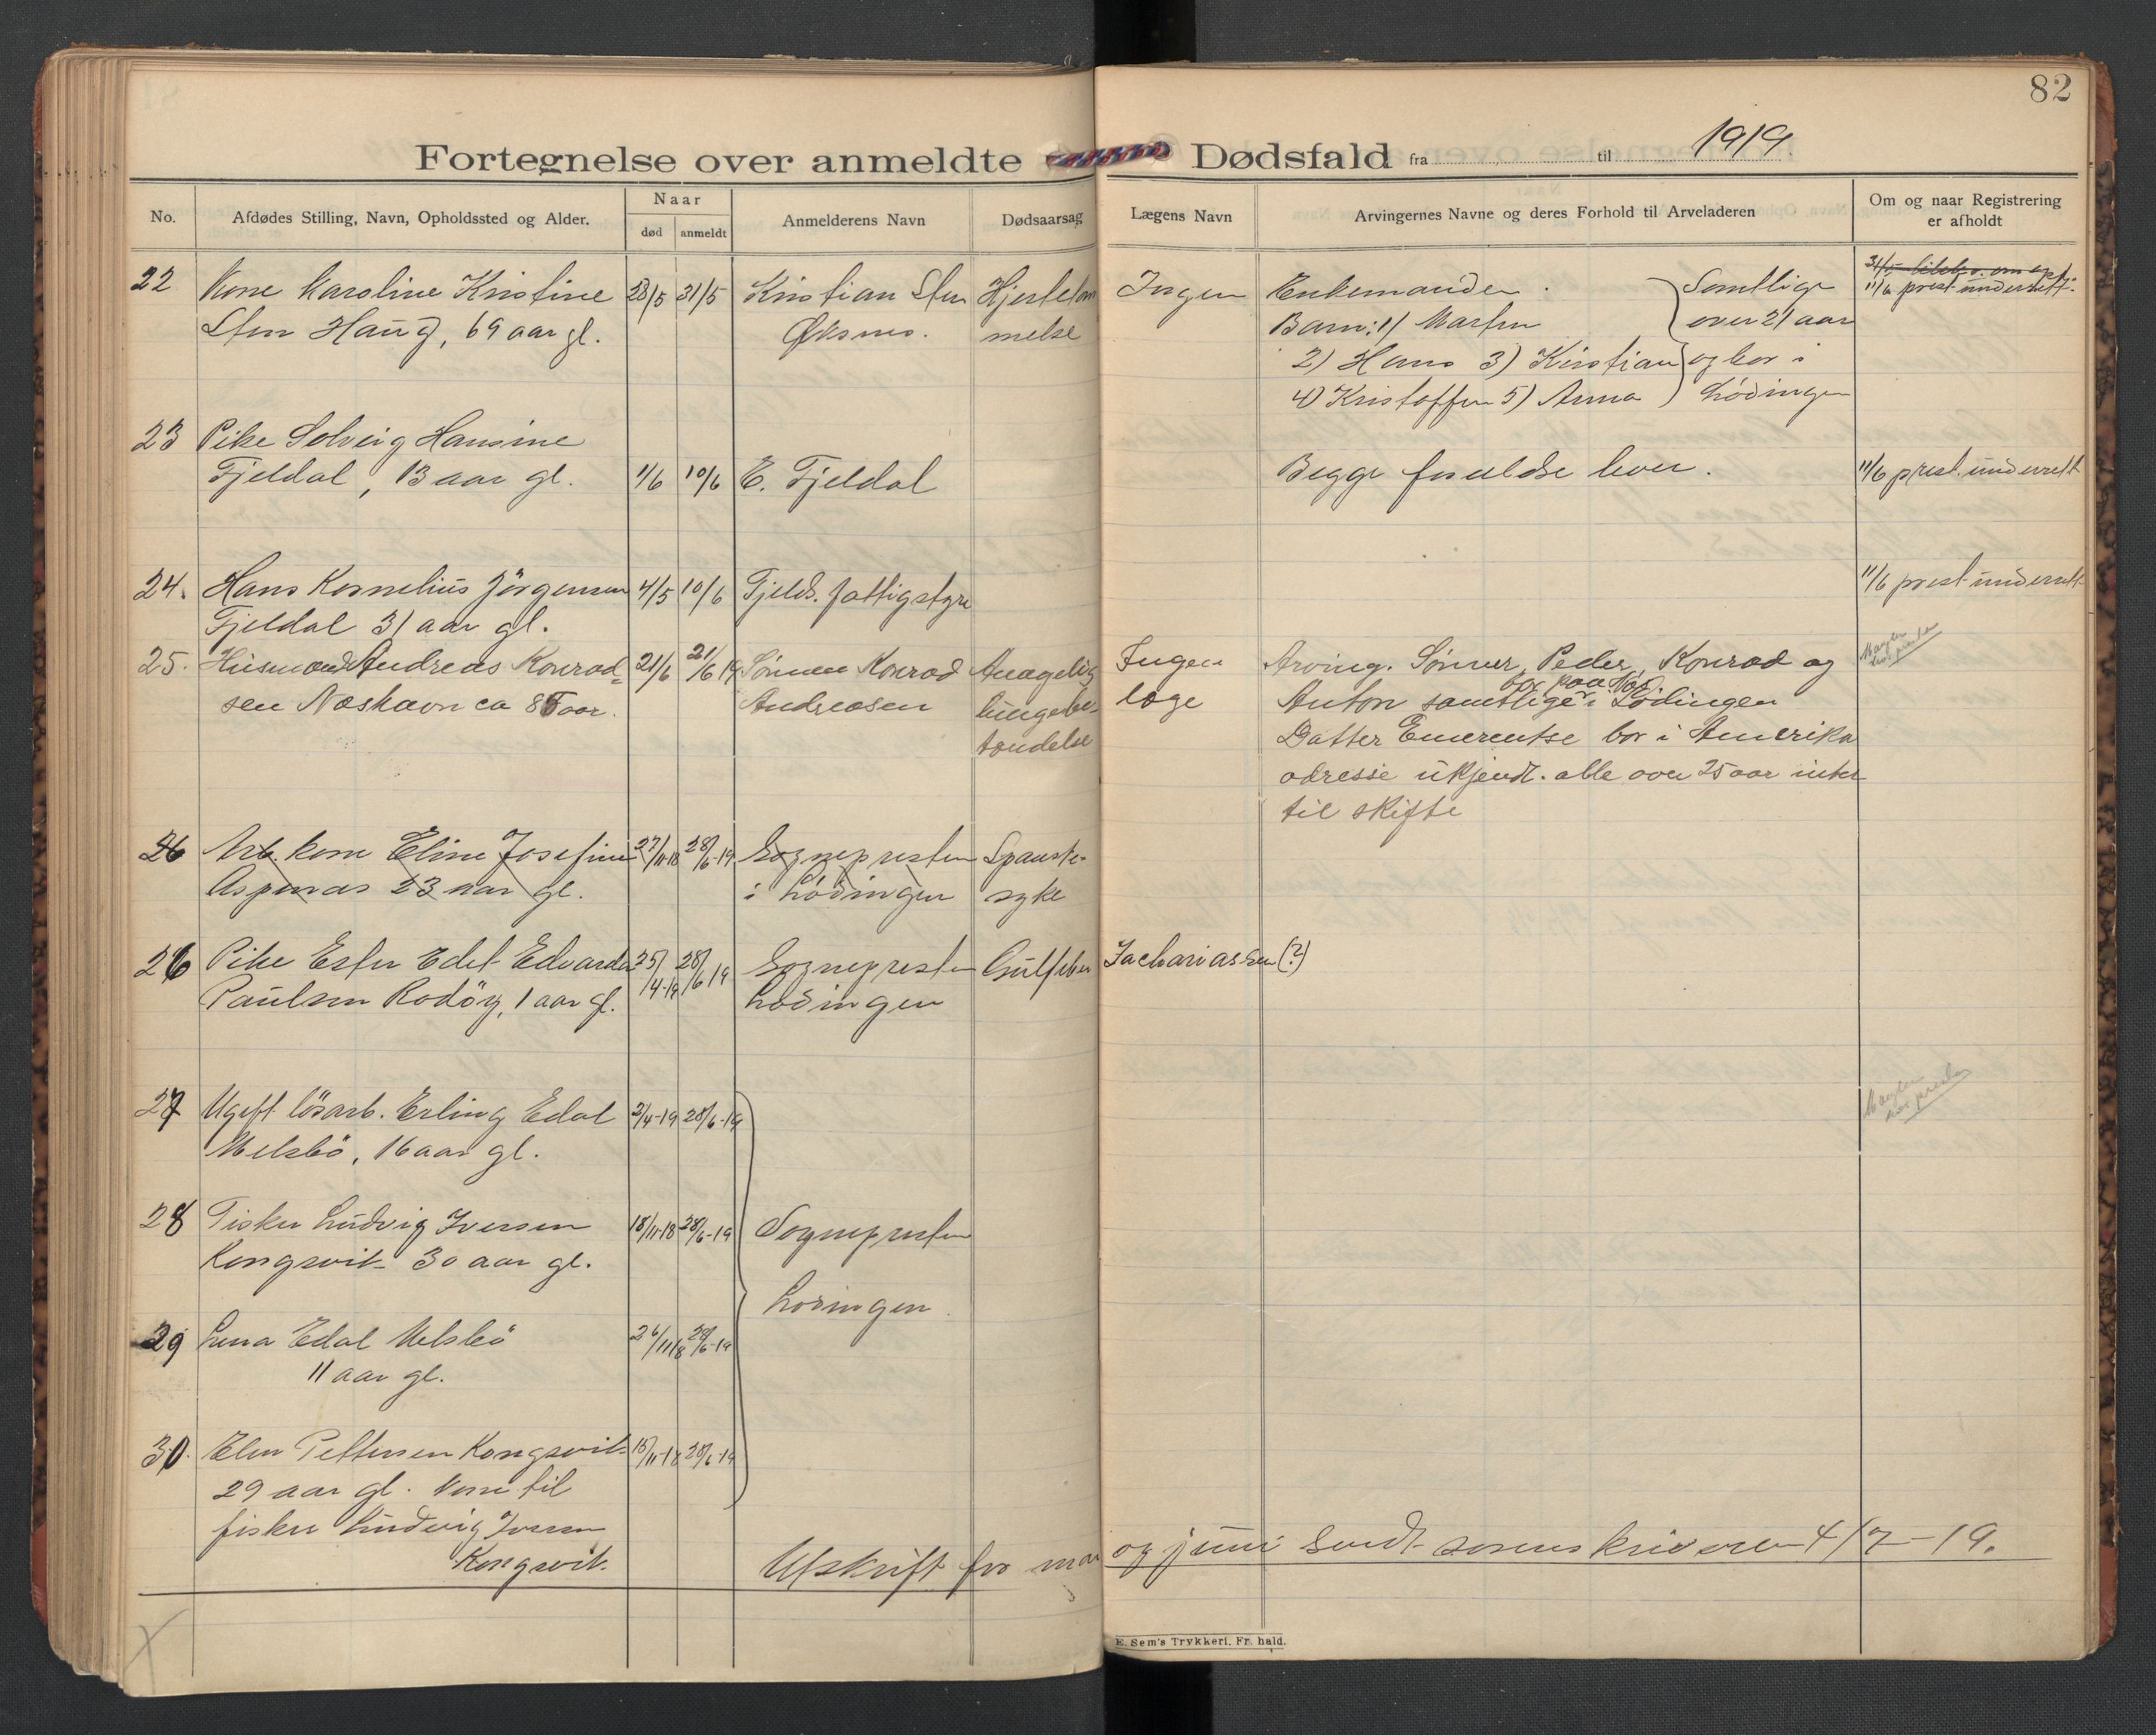 82
Fortegnelse over anmeldte Dødsfald fra til 1919.
No.
Afdødes Stilling, Navn, Opholdssted og Alder.
Naar
død
anmeldt
Anmelderens Navn
Dødsaarsag
Lægens Navn
Arvingernes Navne og deres Forhold til Arveladeren
Om og naar Registrering
er afholdt
22 Kone Karoline Kristine 23/5 31/5 Kristian Sten Ingen Enkemanden. Samtlige
11/6 prest. underrett.
Sten Haug, 69 aar gl. Øksnes. melse Barn: 1) Marten over 21 aar
2) Hans 3) Kristian og bor i
4) Kristoffer 5) Anna Lødingen
23 Pike Solveig Hansine
Fjeldal, 13 aar gl. 1/6 10/6 E. Fjeldal Begge foreldre lever. 11/6 prest. underrett
24. Hans Kornelius Jörgensen 4/5 10/6 Fjeld. fattigstyre 11/6 prest underrett
Fjeldal 31 aar gl.
25. Husmand Andreas Konrad= 21/6 21/6 19 Sönnen Konrad Ingen Arving. Sönner, Peder, Konrad og
Mangler
hos presten
sen Næshavn ca 85 aar. Andreasen lunge be= læge Anton samtlige i Lödingen
bor paa
tændelse Datter Emerentse bor i Amerika
adresse ukjendt. alle over 25 aar intet
til skifte
26 Arb. kone Eline Josefine 27/11-18 28/6-19 Sognepresten Spanske-
Aspenæs 23 aar gl. i Lödingen syke
26 Pike Ester Edel Edvarda 25/4-19 28/6 19 Sognepresten Zachariassen (?)
Paulsen Rodöy, 1 aar gl. Lödingen
27 Ugift lösarb. Erling Edal 2/4-19 28/6-19
Mangler
hos presten
Melsbö, 16 aar gl.
28 Fisker Ludvig Iversen 18/11-18 28/6-19 Sognepresten
Kongsvik 30 aar gl.
Lödingen.
29 Lena Edal Melsbö 26/11 18 28/6-19
11 aar gl.
30. Elen Pettersen Kongsvik 15/11-18 28/6-19
29 aar gl. Kone til
fisker Ludvig Iversen
Kongsvik.
Utskrift for mai og juni sendt sorenskriveren 4/7-19.
E. Sem's Trykkeri, Fr. hald.